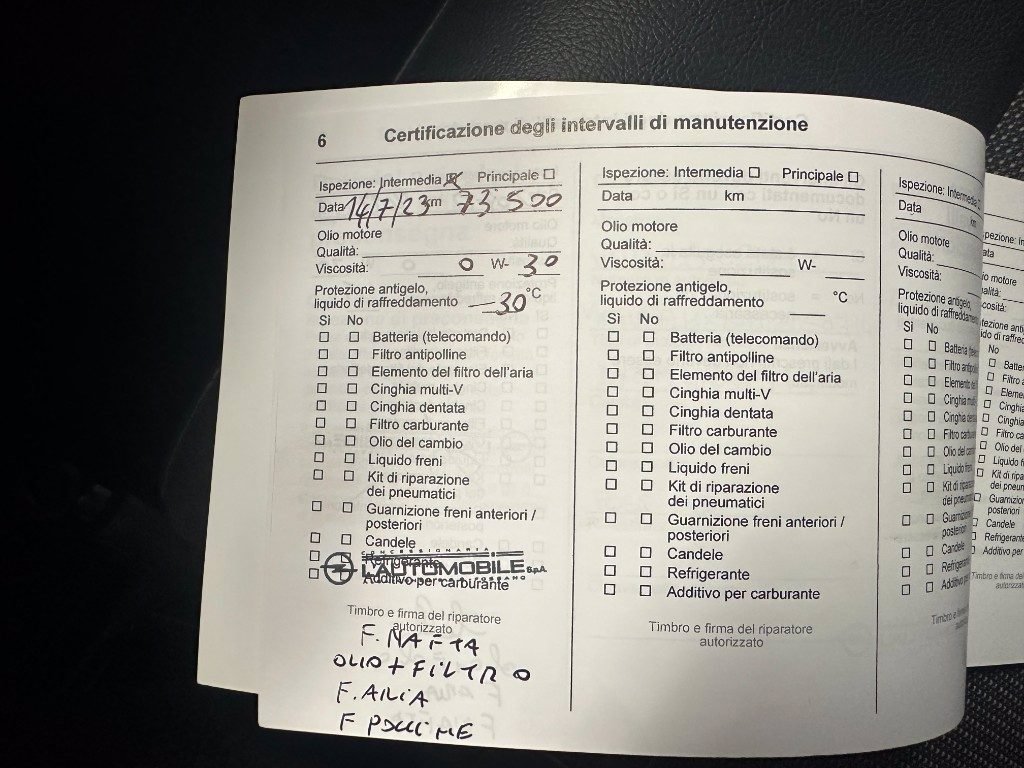 6 Certificazione degli intervalli di manutenzione
Ispezione: Intermedia ☒ Principale ☐
Data 14/7/23 km 73 500
Olio motore
Qualità:
Viscosità: 0 W- 30
Protezione antigelo,
liquido di raffreddamento -30 °C
Sì No
☐ ☐ Batteria (telecomando)
☐ ☐ Filtro antipolline
☐ ☐ Elemento del filtro dell'aria
☐ ☐ Cinghia multi-V
☐ ☐ Cinghia dentata
☐ ☐ Filtro carburante
☐ ☐ Olio del cambio
☐ ☐ Liquido freni
☐ ☐ Kit di riparazione
dei pneumatici
☐ ☐ Guarnizione freni anteriori /
posteriori
☐ ☐ Candele
☐ ☐ Refrigerante
☐ ☐ Additivo per carburante
CONCESSIONARIA
L'AUTOMOBILE S.p.A.
Timbro e firma del riparatore
autorizzato
F. NAFTA
OLIO + FILTRO
F. ARIA
F POLLINE
Ispezione: Intermedia ☐ Principale ☐
Data km
Olio motore
Qualità:
Viscosità: W-
Protezione antigelo,
liquido di raffreddamento °C
Sì No
☐ ☐ Batteria (telecomando)
☐ ☐ Filtro antipolline
☐ ☐ Elemento del filtro dell'aria
☐ ☐ Cinghia multi-V
☐ ☐ Cinghia dentata
☐ ☐ Filtro carburante
☐ ☐ Olio del cambio
☐ ☐ Liquido freni
☐ ☐ Kit di riparazione
dei pneumatici
☐ ☐ Guarnizione freni anteriori /
posteriori
☐ ☐ Candele
☐ ☐ Refrigerante
☐ ☐ Additivo per carburante
Timbro e firma del riparatore
autorizzato
Ispezione:
Data km
Olio motore
Qualità:
Viscosità:
Protezione antigelo,
liquido di
Sì No
☐ ☐ Batteria
☐ ☐ Filtro
☐ ☐ Elemento
☐ ☐ Cinghia
☐ ☐ Cinghia
☐ ☐ Filtro
☐ ☐ Olio del
☐ ☐ Liquido
☐ ☐ Kit di
☐ ☐
☐ ☐ Candele
☐ ☐
☐ ☐ Additivo
Timbro e
No
☐ Filtro
☐ Cinghia
☐ Cinghia
☐ Filtro
☐ Olio del
☐ Liquido
☐ Kit di
posteriori
☐ Candele
☐ Refrigerante
☐ Additivo per
Timbro e firma del